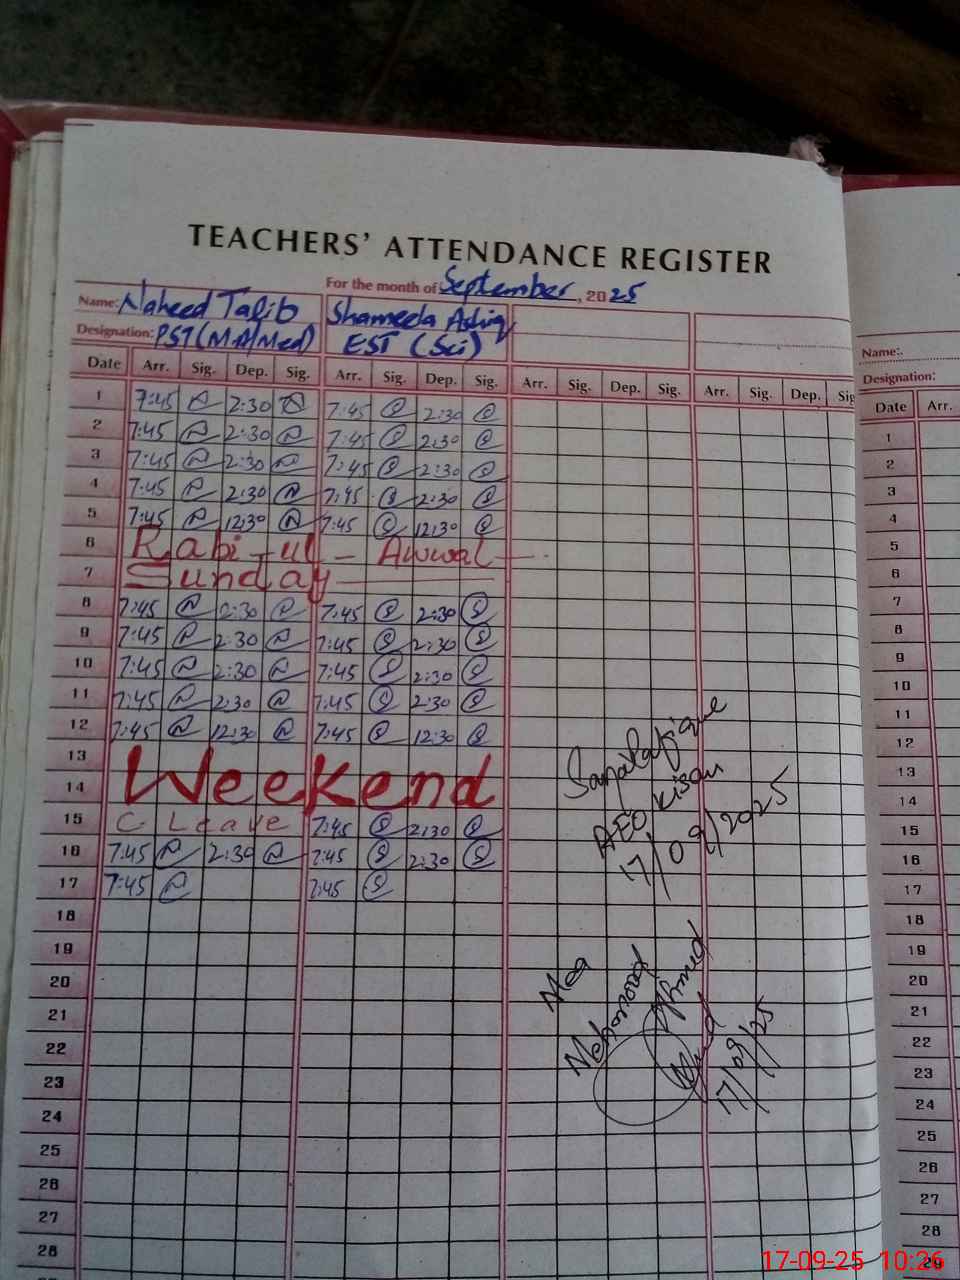 TEACHERS' ATTENDANCE REGISTER
For the month of September, 2025
Name: Naheed Talib Shameela Ashiq
Designation: PST (MA/Med) EST (Sci)
Date Arr. Sig. Dep. Sig. Arr. Sig. Dep. Sig. Arr. Sig. Dep. Sig. Arr. Sig. Dep. Sig
1 7:45 2:30 7:45 2:30
2 7:45 2:30 7:45 2:30
3 7:45 2:30 7:45 2:30
4 7:45 2:30 7:45 2:30
5 7:45 12:30 7:45 12:30
6 Rabi-ul-Awwal
7 Sunday
8 7:45 2:30 7:45 2:30
9 7:45 2:30 7:45 2:30
10 7:45 2:30 7:45 2:30
11 7:45 2:30 7:45 2:30
12 7:45 12:30 7:45 12:30
13
14 Weekend
15 C Leave 7:45 2:30
16 7:45 2:30 7:45 2:30
17 7:45 7:45
18
19
20
21
22
23
24
25
26
27
28
AEO Kisan
17/09/2025
Mea
Mehmood
Ahmed
17/09/25
Name:
Designation:
Date Arr.
1
2
3
4
5
6
7
8
9
10
11
12
13
14
15
16
17
18
19
20
21
22
23
24
25
26
27
28
17-09-25 10:26